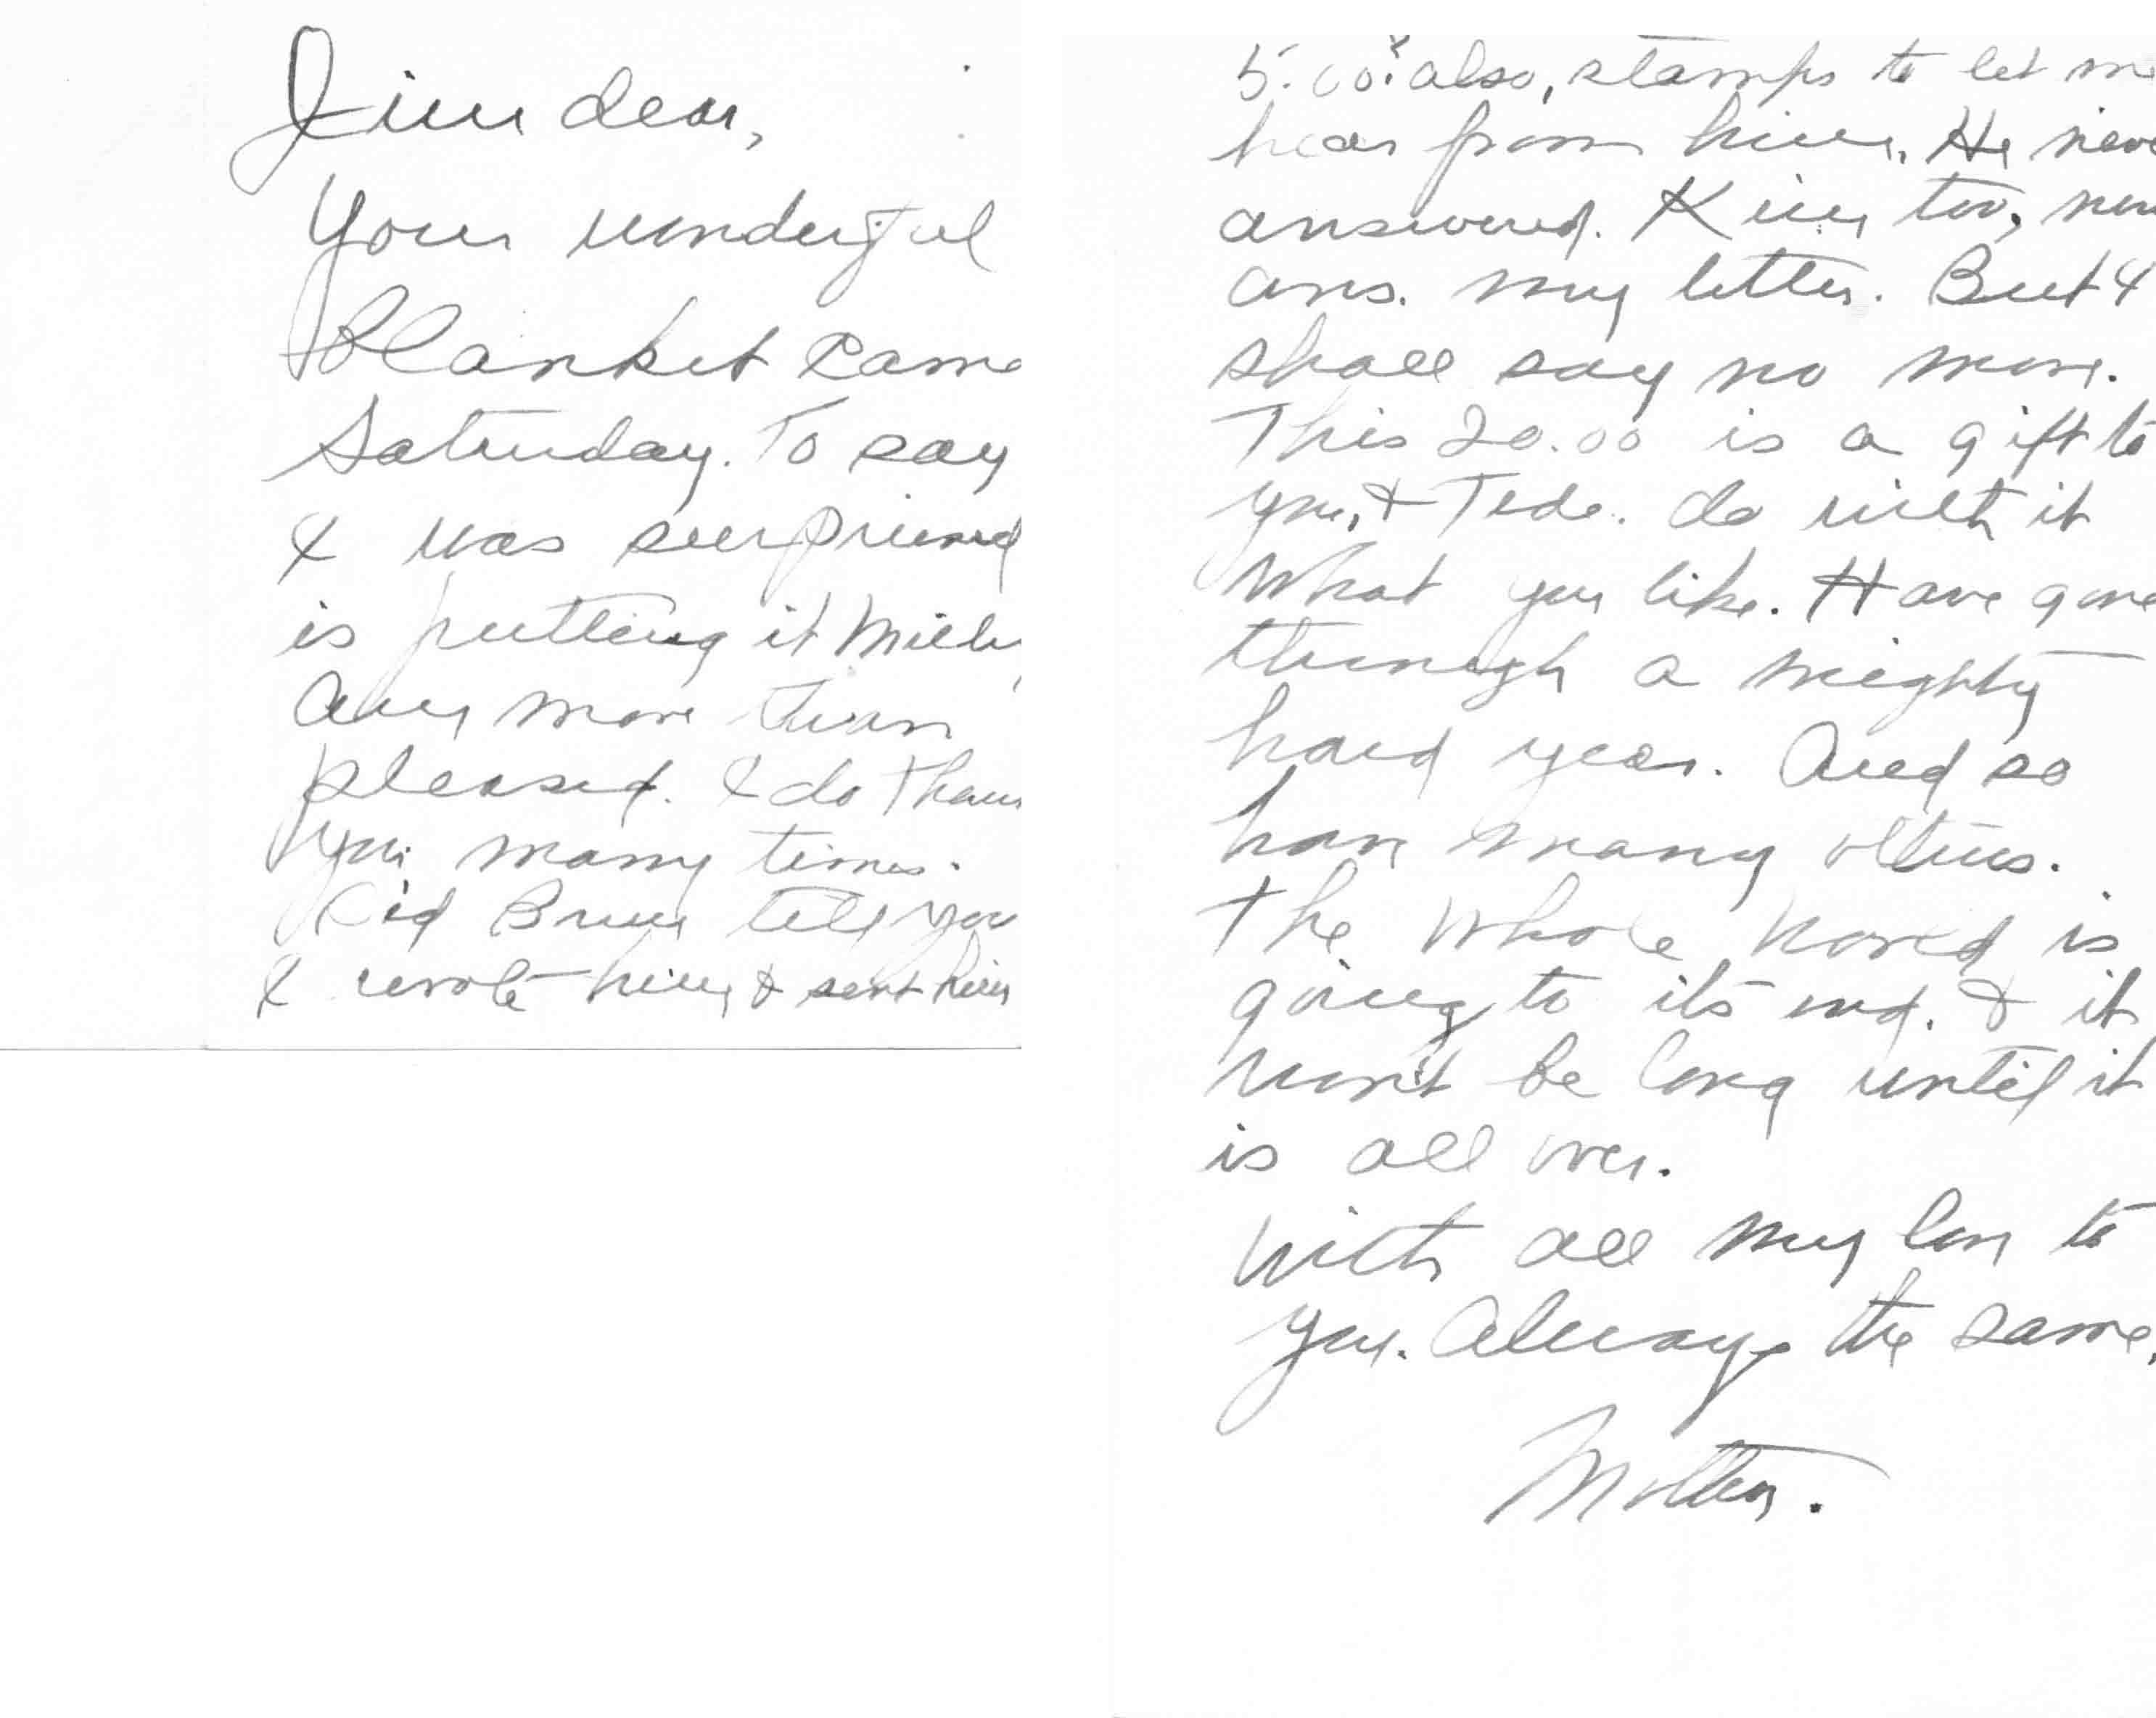 Jim dear,
Your wonderful
Blanket came
Saturday. To say
I was surprised
is putting it mildly
Am more than
pleased. I do thank
you many times.
Did Bruce tell you
I wrote him & sent him
5.00? also, stamps to let me
hear from him. He never
answered. Kim too, never
ans. my letter. But I
shall say no more.
This 20.00 is a gift to
you, & Tedo. do with it
what you like. Have gone
through a mighty
hard year. And so
have many others.
The whole World is
going to its end. & it
won't be long until it
is all over.
With all my love to
you. Always the same,
Mother.